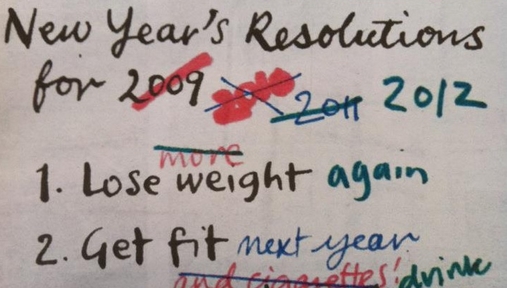 New Year's Resolutions
for 2009 2011 2012
more
1. Lose weight again
2. Get fit next year
and cigarettes! drink